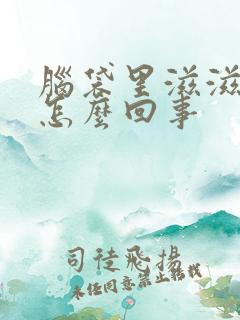 腦袋里滋滋
怎麼回事
司徒飛揚
未經同意禁止轉載